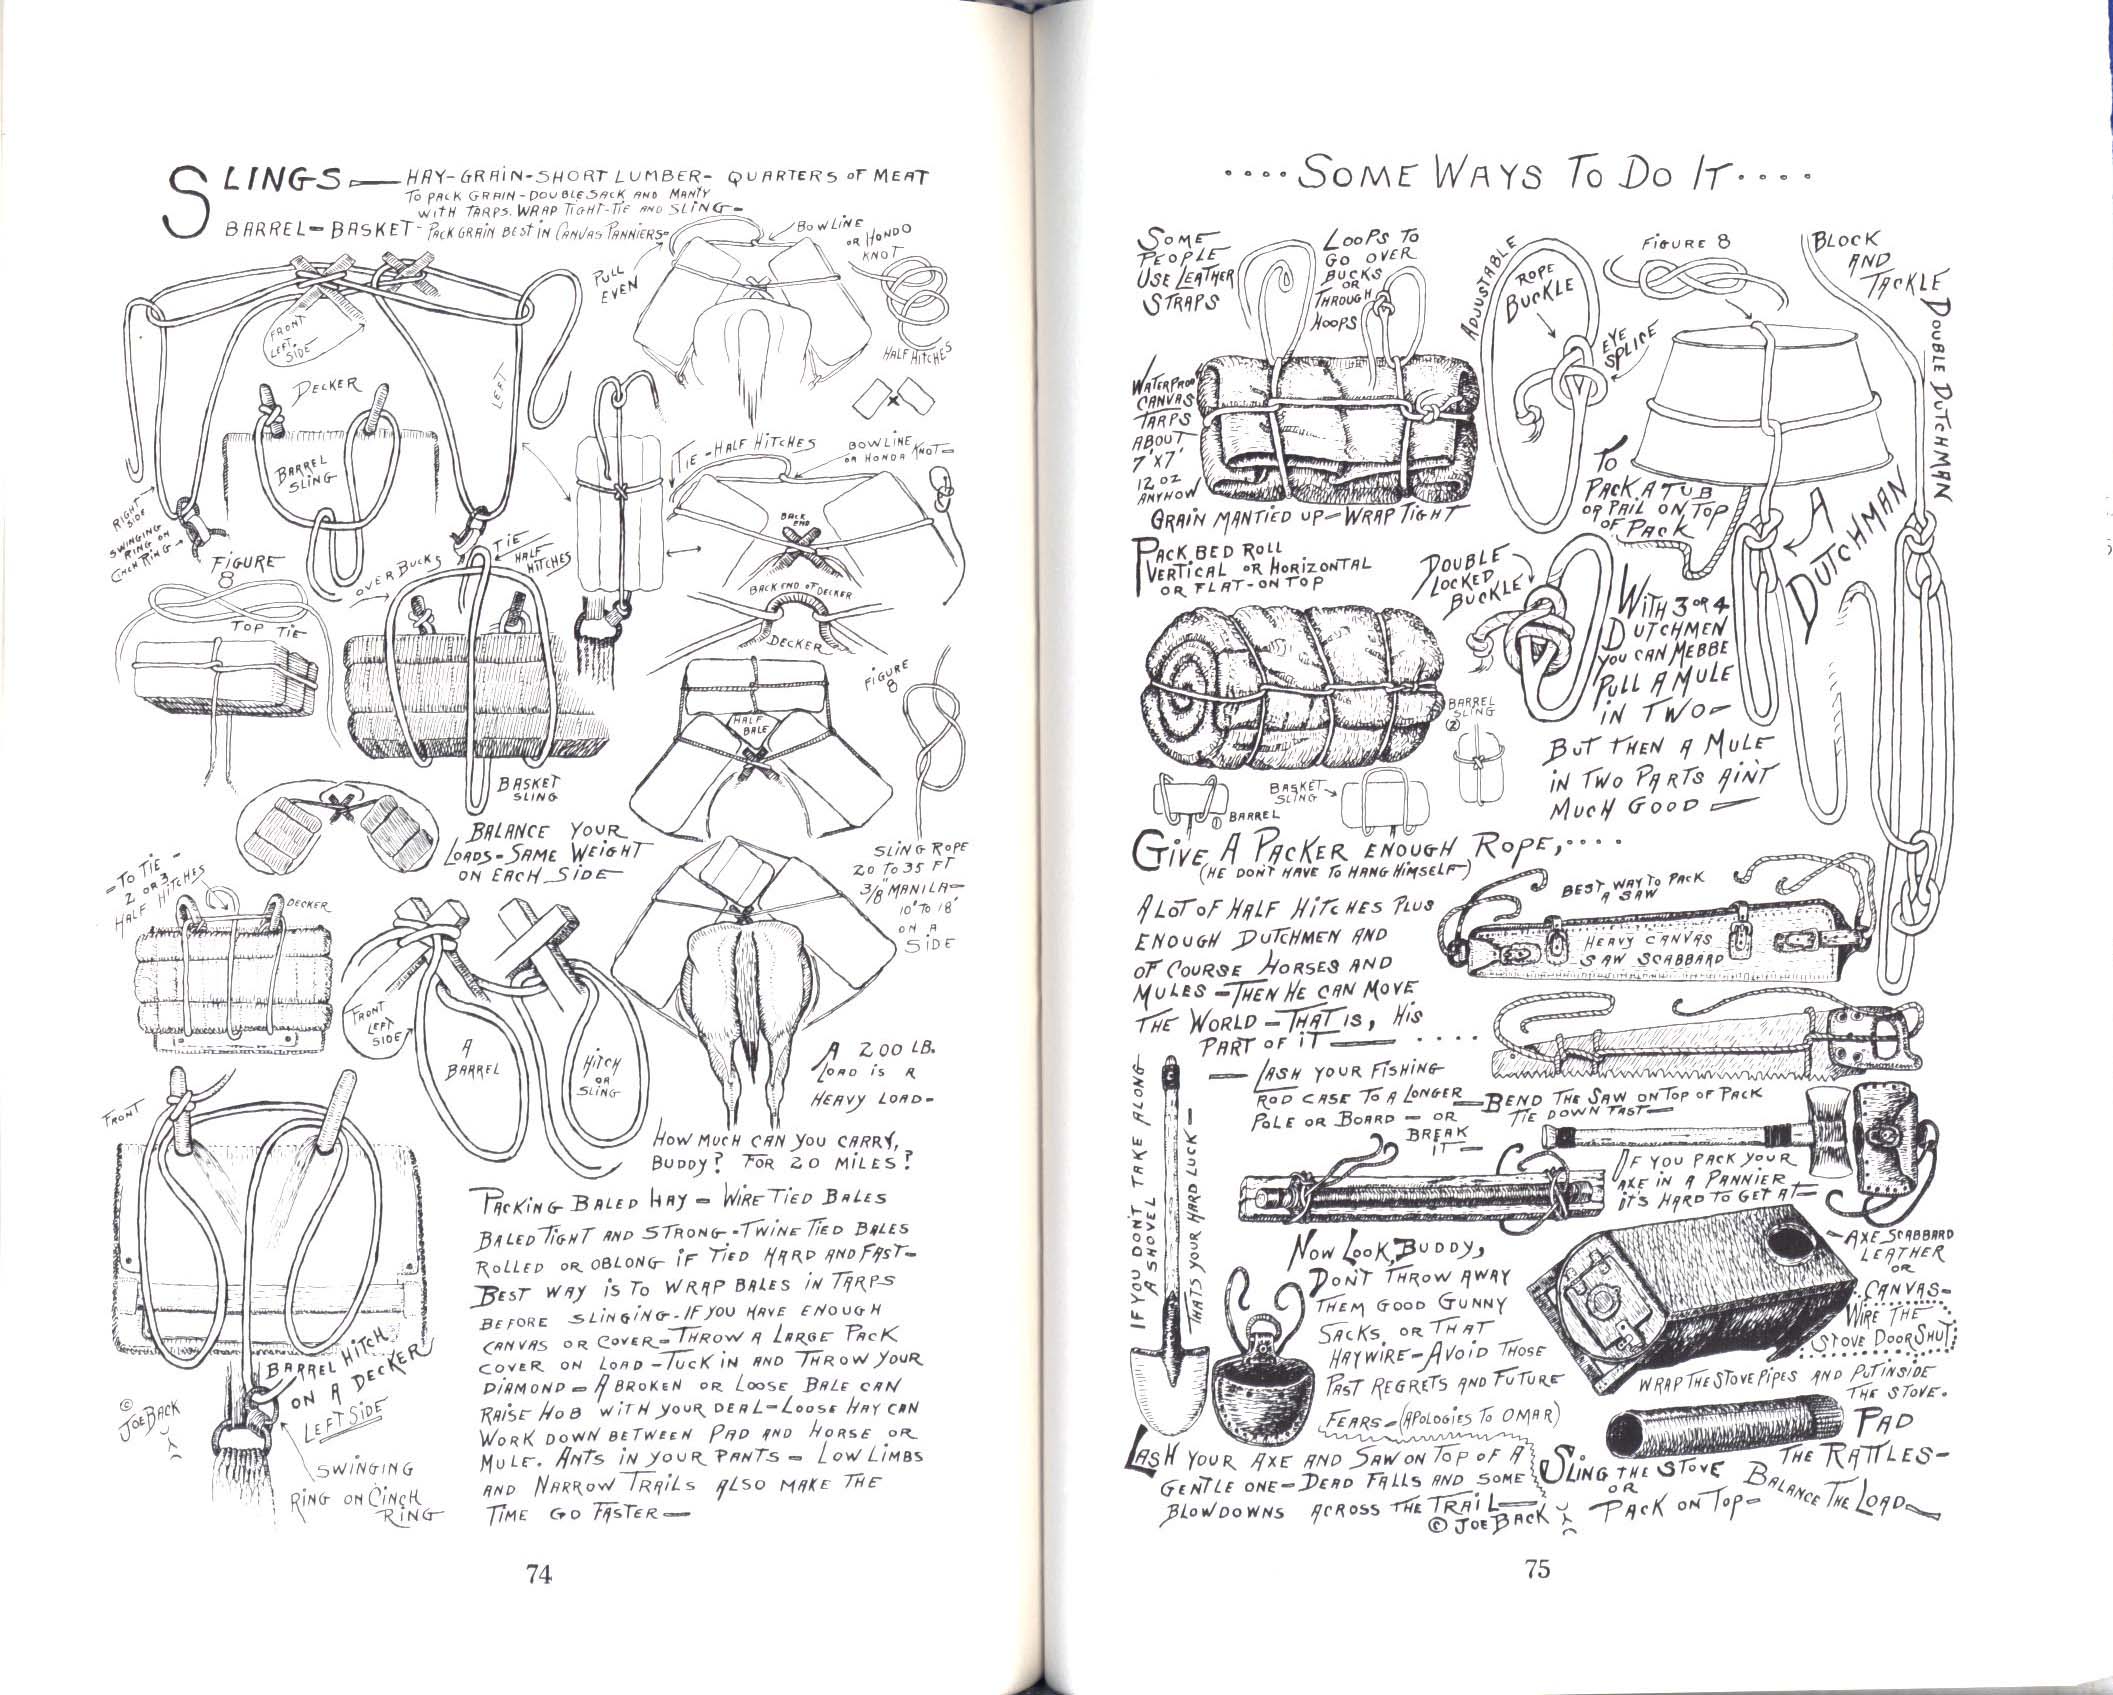 SLINGS — HAY-GRAIN-SHORT LUMBER- QUARTERS OF MEAT
TO PACK GRAIN-DOUBLE SACK AND MANTY
WITH TARPS. WRAP TIGHT-TIE AND SLING-
BARREL-BASKET-PACK GRAIN BEST IN CANVAS PANNIERS-
PULL
EVEN
BOWLINE
OR HONDO
KNOT
HALF HITCHES
FRONT
LEFT
SIDE
LEFT
DECKER
BARREL
SLING
RIGHT
SIDE
SWINGING
RING ON
CINCH RING
TIE-HALF HITCHES
BOWLINE
OR HONDA KNOT-
BACK
END
FIGURE
8
TOP TIE
OVER BUCKS
TIE
HALF
HITCHES
BACK END OF DECKER
DECKER
FIGURE
8
HALF
BALE
BASKET
SLING
BALANCE YOUR
LOADS-SAME WEIGHT
ON EACH SIDE
SLING ROPE
20 TO 35 FT
3/8" MANILA-
10' TO 18'
ON A
SIDE
-TO TIE-
2 OR 3
HALF HITCHES
DECKER
FRONT
LEFT
SIDE
A
BARREL
HITCH
OR
SLING
A 200 LB.
LOAD IS A
HEAVY LOAD-
HOW MUCH CAN YOU CARRY,
BUDDY? FOR 20 MILES?
FRONT
BARREL HITCH
ON A DECKER
LEFT SIDE
© JOE BACK
SWINGING
RING ON CINCH
RING
PACKING BALED HAY - WIRE TIED BALES
BALED TIGHT AND STRONG-TWINE TIED BALES
ROLLED OR OBLONG IF TIED HARD AND FAST-
BEST WAY IS TO WRAP BALES IN TARPS
BEFORE SLINGING-IF YOU HAVE ENOUGH
CANVAS OR COVER-THROW A LARGE PACK
COVER ON LOAD-TUCK IN AND THROW YOUR
DIAMOND-A BROKEN OR LOOSE BALE CAN
RAISE HOB WITH YOUR DEAL-LOOSE HAY CAN
WORK DOWN BETWEEN PAD AND HORSE OR
MULE. ANTS IN YOUR PANTS - LOW LIMBS
AND NARROW TRAILS ALSO MAKE THE
TIME GO FASTER-
74
....SOME WAYS TO DO IT....
SOME
PEOPLE
USE LEATHER
STRAPS
LOOPS TO
GO OVER
BUCKS
OR
THROUGH
HOOPS
ADJUSTABLE
ROPE
BUCKLE
EYE
SPLICE
FIGURE 8
BLOCK
AND
TACKLE
DOUBLE DUTCHMAN
WATERPROOF
CANVAS
TARPS
ABOUT
7'X7'
12 OZ
ANYHOW
GRAIN MANTIED UP-WRAP TIGHT
TO
PACK A TUB
OR PAIL ON TOP
OF PACK
A
DUTCHMAN
PACK BED ROLL
VERTICAL OR HORIZONTAL
OR FLAT-ON TOP
DOUBLE
LOCKED
BUCKLE
WITH 3 OR 4
DUTCHMEN
YOU CAN MEBBE
PULL A MULE
IN TWO-
BUT THEN A MULE
IN TWO PARTS AIN'T
MUCH GOOD-
BARREL
SLING
2
1 BARREL
BASKET
SLING
GIVE A PACKER ENOUGH ROPE,....
(HE DON'T HAVE TO HANG HIMSELF-)
A LOT OF HALF HITCHES PLUS
ENOUGH DUTCHMEN AND
OF COURSE HORSES AND
MULES-THEN HE CAN MOVE
THE WORLD-THAT IS, HIS
PART OF IT— ....
BEST WAY TO PACK
A SAW
HEAVY CANVAS
SAW SCABBARD
-LASH YOUR FISHING
ROD CASE TO A LONGER
POLE OR BOARD-OR
BREAK
IT-
-BEND THE SAW ON TOP OF PACK
TIE DOWN FAST-
IF YOU DON'T TAKE ALONG
A SHOVEL
THATS YOUR HARD LUCK-
IF YOU PACK YOUR
AXE IN A PANNIER
IT'S HARD TO GET AT-
-AXE SCABBARD
LEATHER
OR
CANVAS-
NOW LOOK, BUDDY,
DON'T THROW AWAY
THEM GOOD GUNNY
SACKS, OR THAT
HAYWIRE-AVOID THOSE
PAST REGRETS AND FUTURE
FEARS-(APOLOGIES TO OMAR)
WIRE THE
STOVE DOOR SHUT
WRAP THE STOVE PIPES AND PUT INSIDE
THE STOVE.
PAD
THE RATTLES-
BALANCE THE LOAD-
LASH YOUR AXE AND SAW ON TOP OF A
GENTLE ONE-DEAD FALLS AND SOME
BLOWDOWNS ACROSS THE TRAIL-
© JOE BACK
SLING THE STOVE
OR
PACK ON TOP-
75